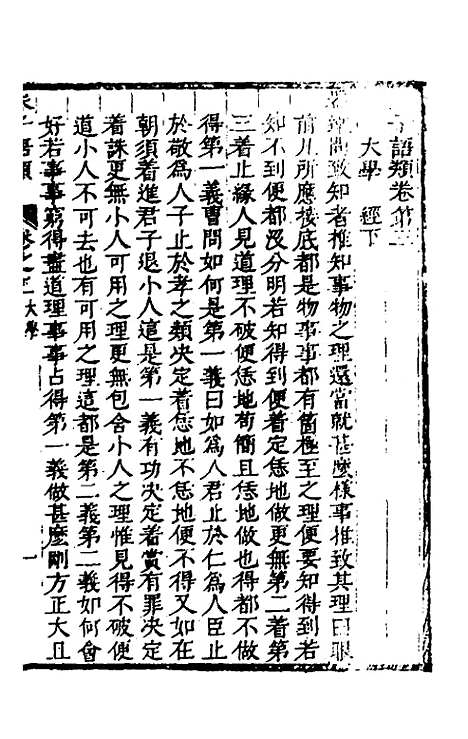 子語類卷第三
大學 經下
器遠問致知者推知事物之理還當就甚麽樣事推致其理曰眼
前凡所應接底都是物事事都有箇極至之理便要知得到若
知不到便都沒分明若知得到便着定恁地做更無第二着第
三着止緣人見道理不破便恁地苟簡且恁地做也得都不做
得第一義曹問如何是第一義曰如為人君止於仁為人臣止
於敬為人子止於孝之類决定着恁地不恁地便不得又如在
朝須着進君子退小人這是第一義有功决定着賞有罪决定
着誅更無小人可用之理更無包含小人之理惟見得不破便
道小人不可去也有可用之理這都是第二義第二義如何會
好若事事窮得盡道理事事占得第一義做甚麽剛方正大且
朱子語類 大學 一